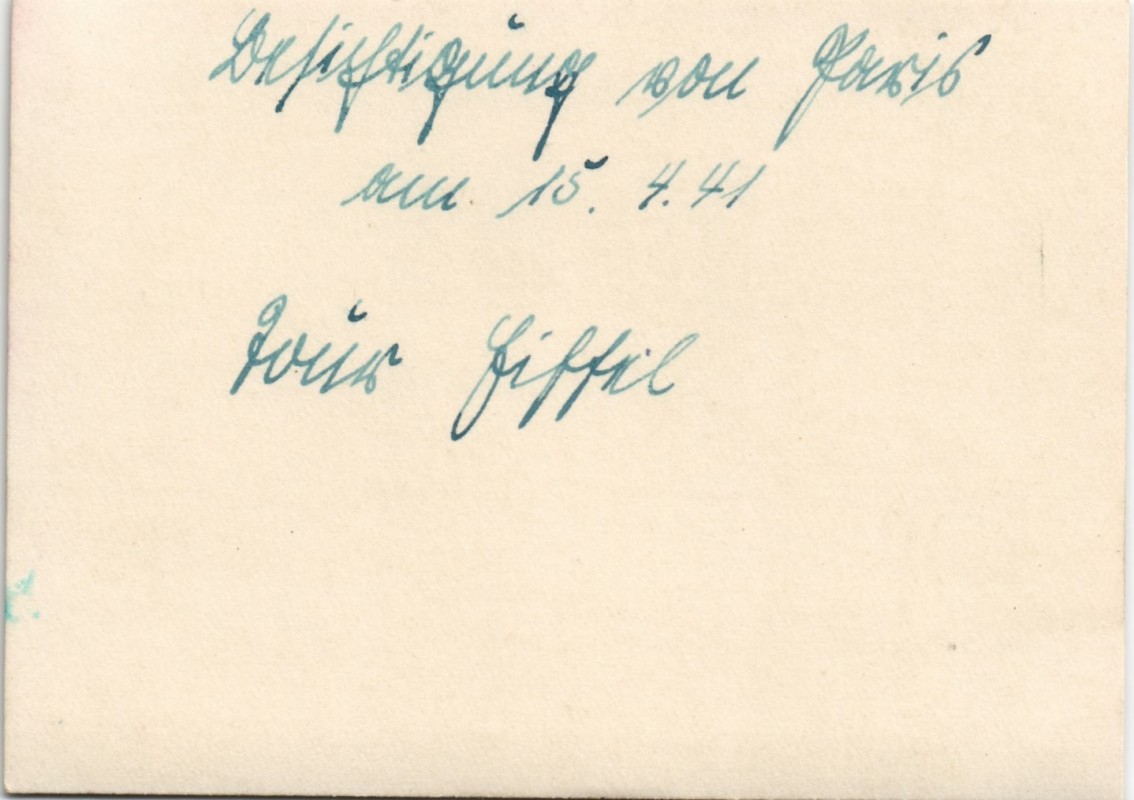 Besichtigung von Paris
am 15. 4. 41
Tour Eiffel